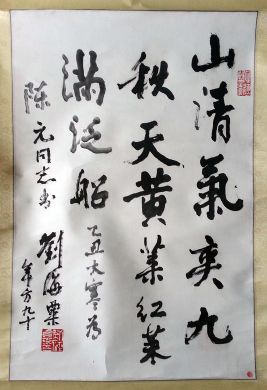 山清氣爽九
秋天黄菊紅茱
满泛船
乙丑大寒为
陳元同志书
劉海粟
年方九十